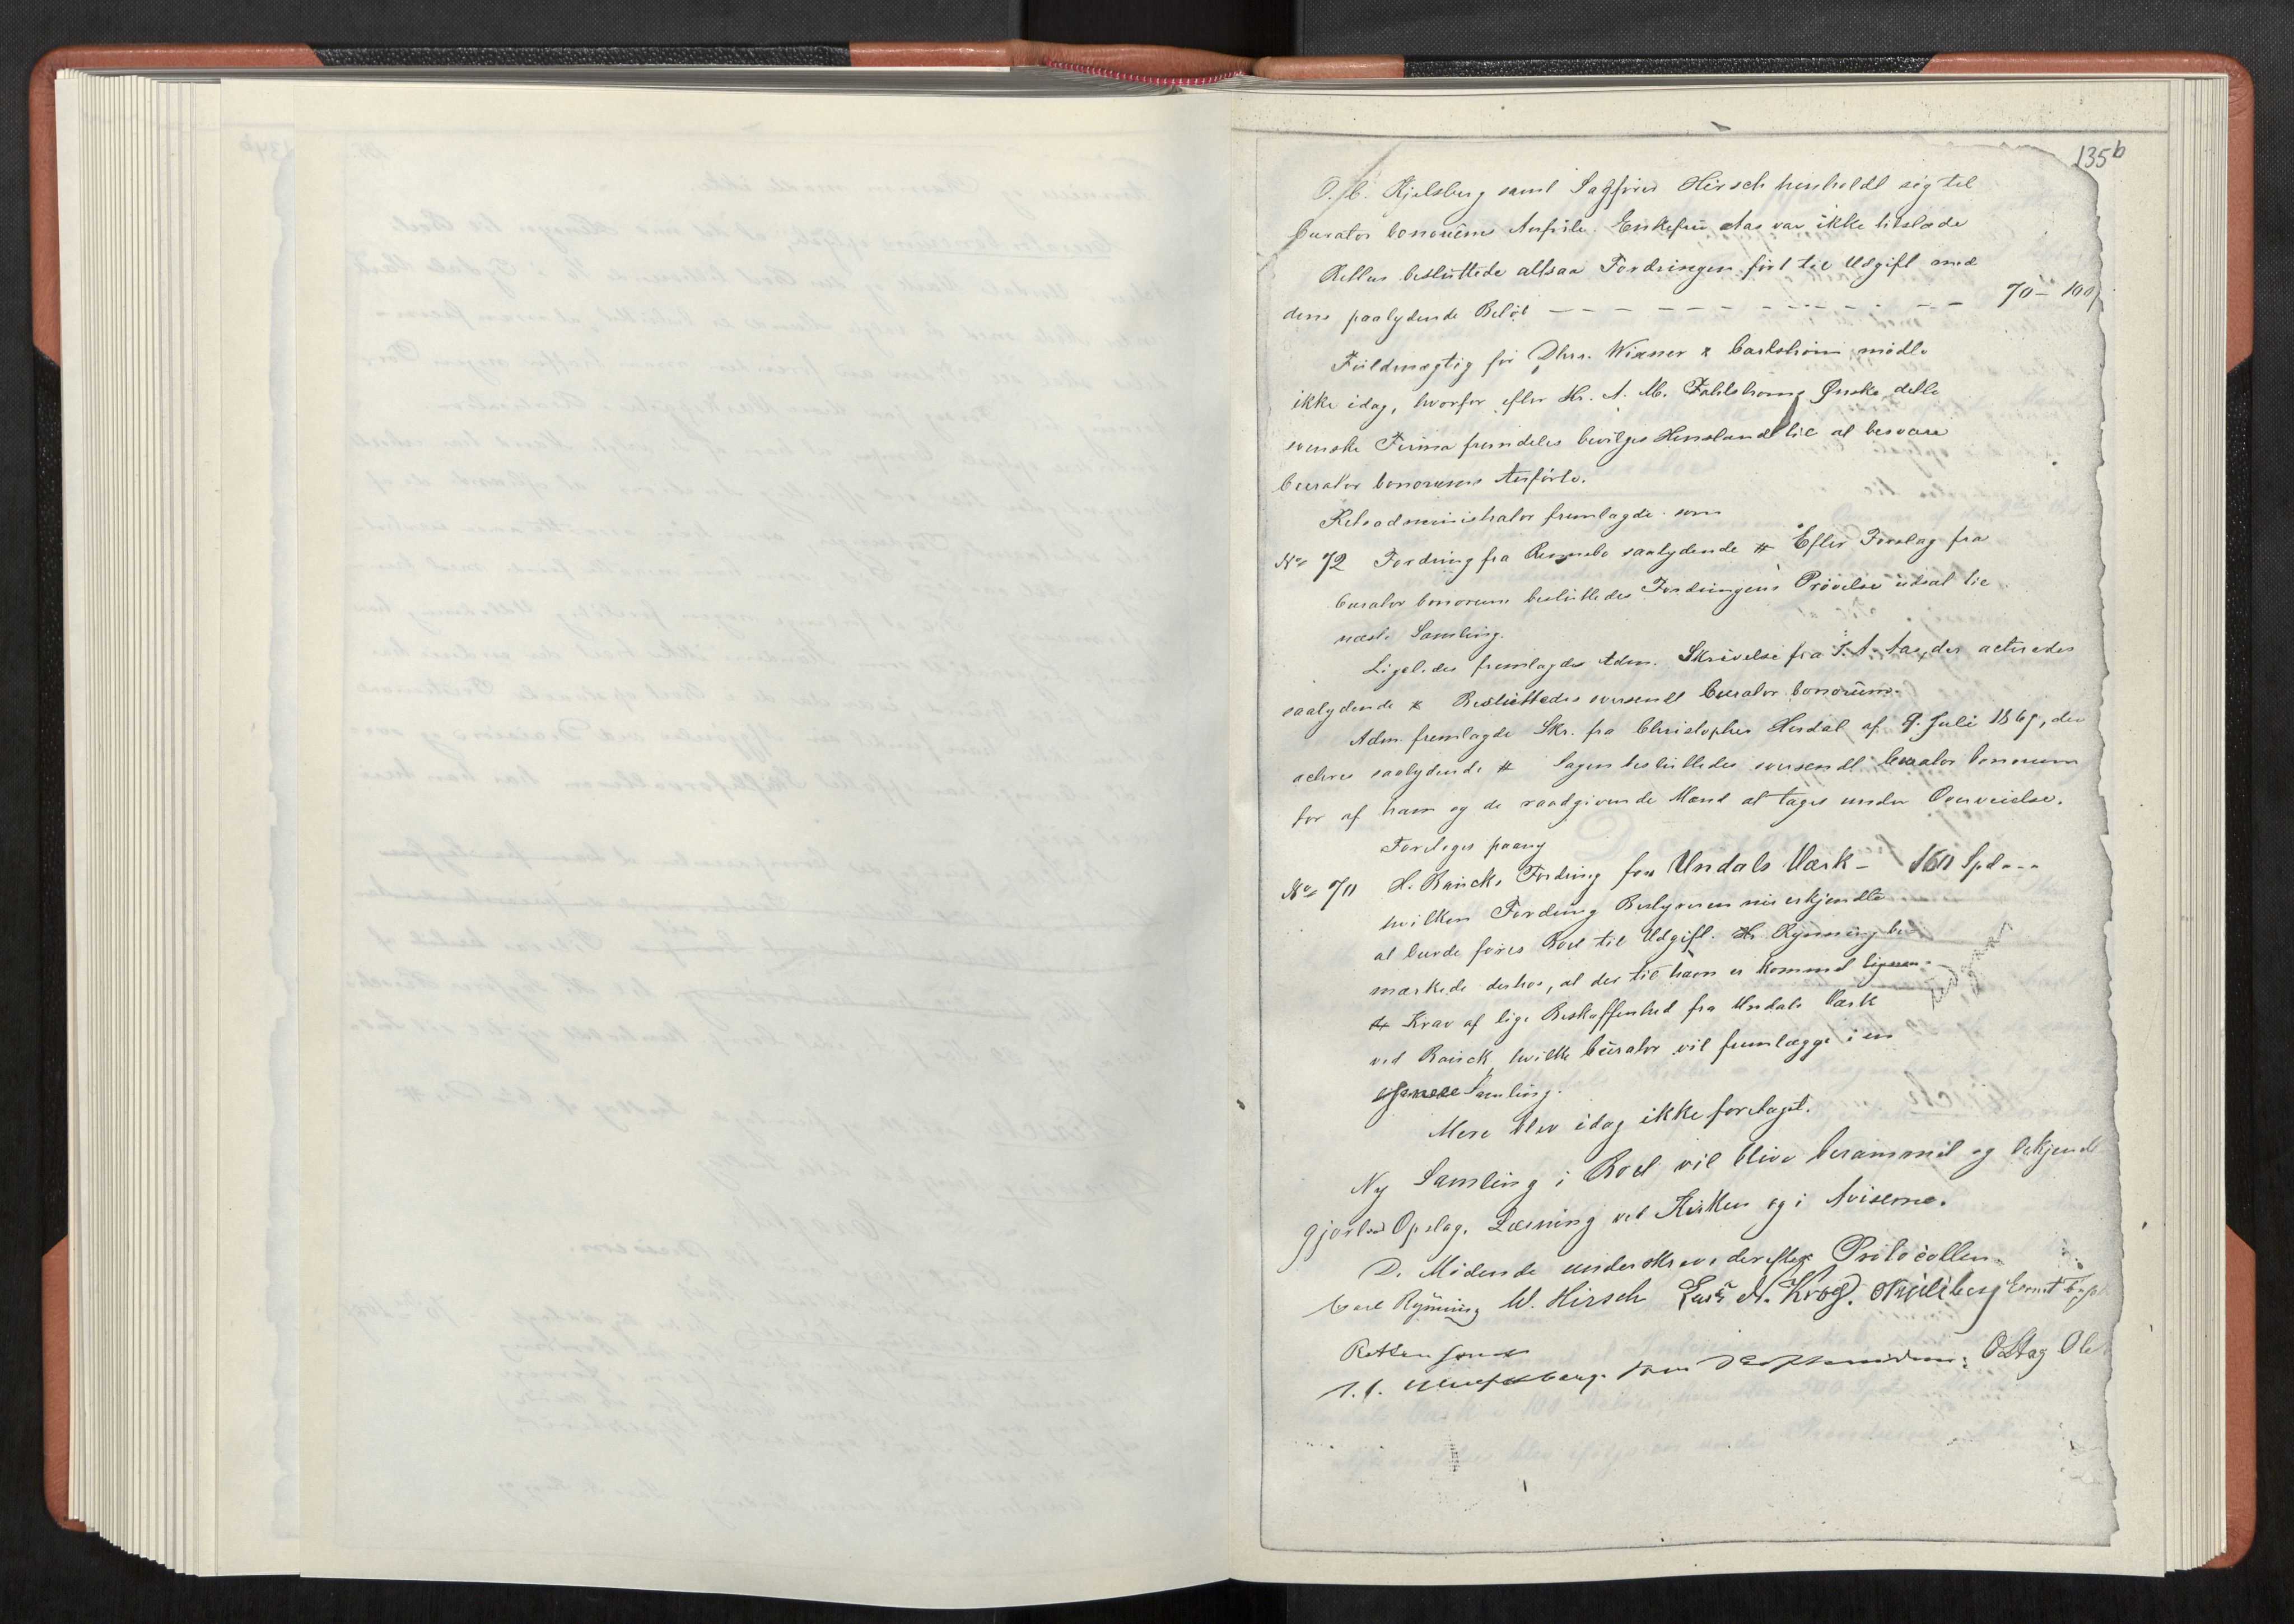 135b
O. C. Kjelsberg samt Sagfører Hirsch henholdt sig til
Curator bonorums Anførte. Enkefru Aas var ikke tilstæde
Retten besluttede altsaa Fordringen ført til Udgift med
dens paalydende Beløb — — — — — — — — — — 70 — 100
Fuldmægtig for Dhrr. Wiæner & Carlström mødte
ikke idag, hvorfor efter Hr. A. M. Fahlstroms Ønske dette
svenske Firma fremdeles bevilges Henstand til at besvare
Curator bonorums Anførte.
Retsadministrator fremlagde som
No 72 Fordring fra Rennebo saalydende # Efter Forslag fra
Curator bonorum besluttedes Fordringens Prøvelse udsat til
næste Samling.
Ligeledes fremlagdes Adm. Skrivelse fra I. A. Aas, der acteredes
saalydende # Besluttedes oversendt Curator bonorum.
Adm. fremlagde Skr. fra Christopher Hesdal af 9. Juli 1869, der
acteres saalydende # Sagen besluttedes oversendt Curator bonorum
for af ham og de raadgivende Mænd at tages under Overveielse.
Foretoges paany
No 70 H. Raucks Fordring fra Undals Værk — 160 Spd - -
hvilken Fordring Bestyreren nu erkjendte
at burde føres Boet til Udgift. Hr. Rynning be
mærkede derhos, at der til ham er kommet
Krav af lige Beskaffenhed fra Undals Værk
ved Rauck, hvilke Curator vil fremlægge i en
Samling.
Mere blev idag ikke foretaget.
Ny Samling i Boet vil blive berammet og bekjendt
gjort ved Opslag, Læsning ved Kirken og i Aviserne.
De Mødende underskrev derefter Protocollen.
Carl Rynning W. Hirsch Lars A. Krog. Kjelsberg
Retten